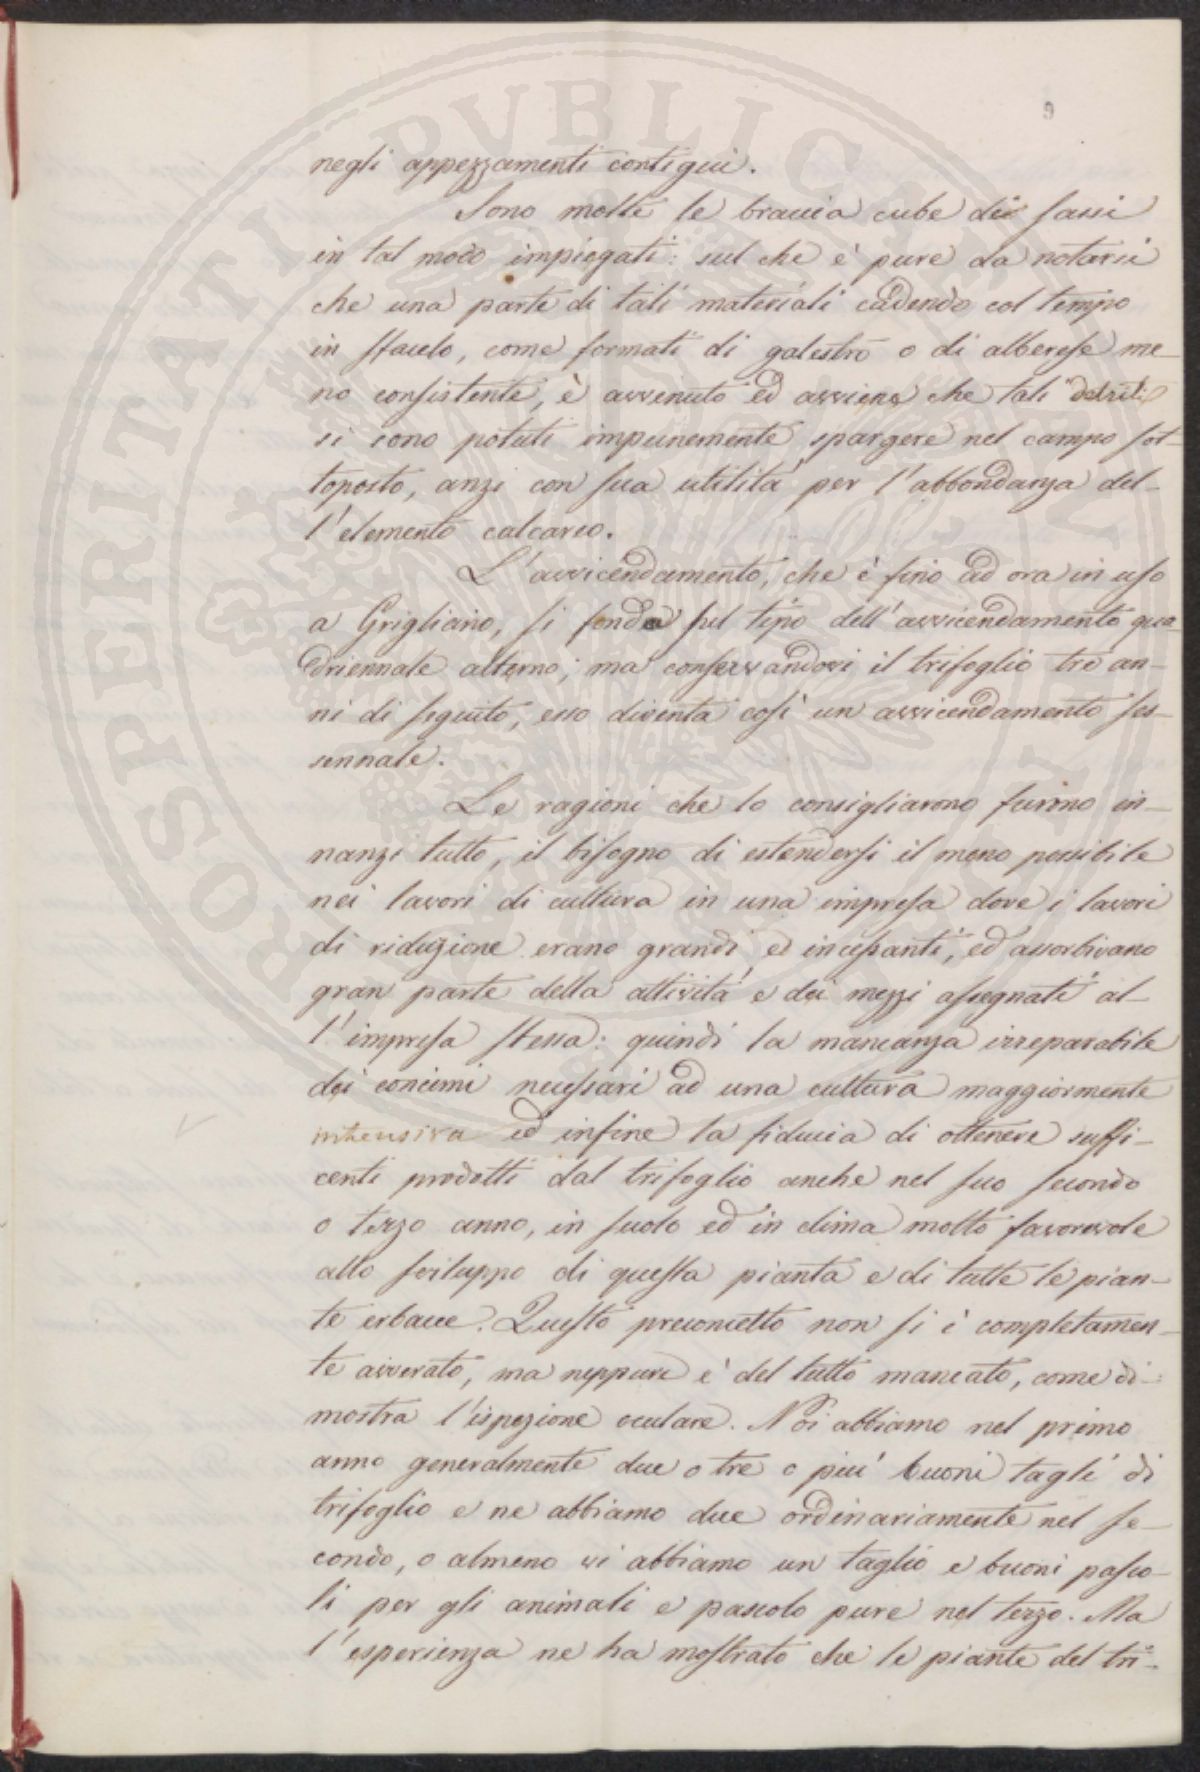 9
negli appezzamenti contigui.
Sono molte le braccia cube di sassi
in tal modo impiegati: sul che è pure da notarsi
che una parte di tali materiali cadendo col tempo
in sfacelo, come formati di galestro o di alberese me-
no consistente, è avvenuto ed avviene che tali detriti
si sono potuti impunemente spargere nel campo sot-
toposto, anzi con sua utilità per l'abbondanza del-
l'elemento calcareo.
L'avvicendamento, che è fino ad ora in uso
a Grigliano, si fonda sul tipo dell'avvicendamento qua-
driennale alterno; ma conservandovi il trifoglio tre an-
ni di seguito, esso diventa così un avvicendamento ses-
sennale.
Le ragioni che lo consigliarono furono in-
nanzi tutto, il bisogno di estendersi il meno possibile
nei lavori di cultura in una impresa dove i lavori
di riduzione erano grandi ed incessanti, ed assorbivano
gran parte della attività e dei mezzi assegnati al-
l'impresa stessa: quindi la mancanza irreparabile
dei concimi necessari ad una cultura maggiormente
intensiva ed infine la fiducia di ottenere suffi-
centi prodotti dal trifoglio anche nel suo secondo
o terzo anno, in suolo ed in clima molto favorevole
allo sviluppo di questa pianta e di tutte le pian-
te erbacee. Questo preconcetto non si è completamen-
te avverato, ma neppure è del tutto mancato, come di-
mostra l'ispezione oculare. Noi abbiamo nel primo
anno generalmente due o tre o più buoni tagli di
trifoglio e ne abbiamo due ordinariamente nel se-
condo, o almeno vi abbiamo un taglio e buoni pasco-
li per gli animali e pascolo pure nel terzo. Ma
l'esperienza ne ha mostrato che le piante del tri-
PROSPERITATI PUBLICAE